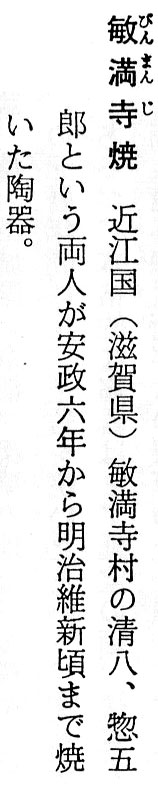 敏満寺焼 近江国（滋賀県）敏満寺村の清八、惣五
郎という両人が安政六年から明治維新頃まで焼
いた陶器。
びんまんじ